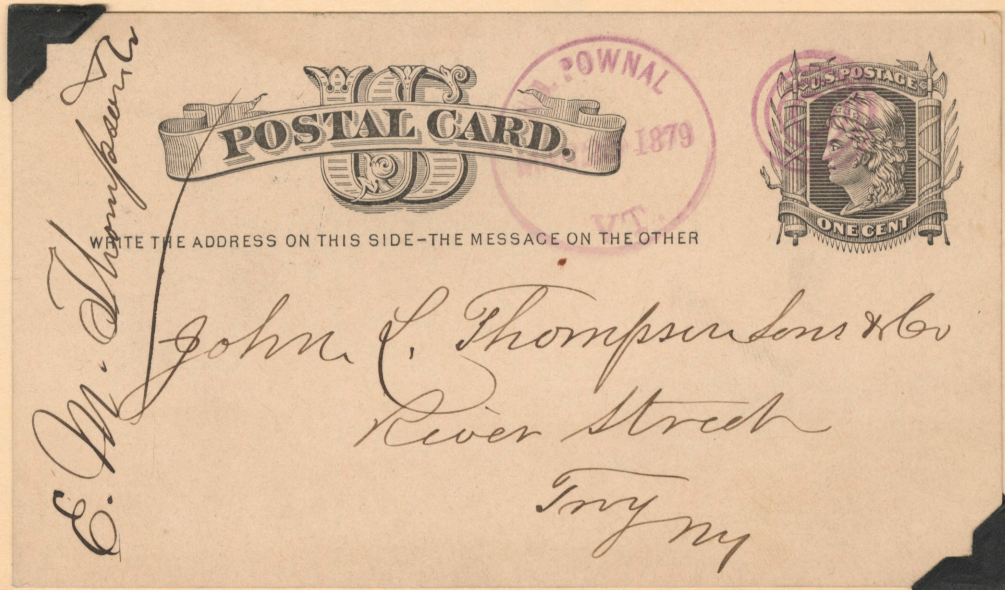 US
POSTAL CARD.
N. POWNAL
1879
VT.
U.S. POSTAGE
ONE CENT
WRITE THE ADDRESS ON THIS SIDE-THE MESSAGE ON THE OTHER
John L. Thompson Sons & Co
River Street
Troy NY
E. M. Thompson